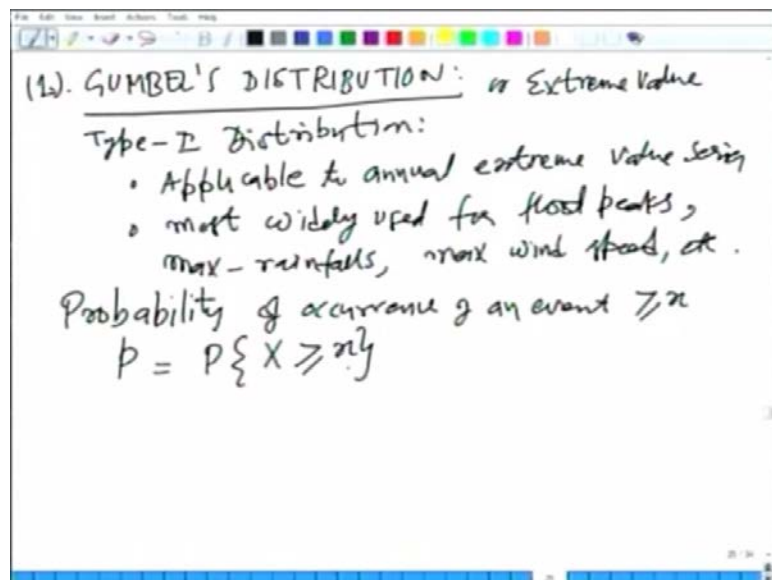 File Edit View Insert Actions Tools Help
(12). GUMBEL'S DISTRIBUTION: or Extreme Value
Type-I Distribution:
• Applicable to annual extreme value series
• most widely used for flood peaks,
max-rainfalls, max wind speed, etc.
Probability of occurrence of an event ≥ x
p = P{X ≥ x}
25 / 34